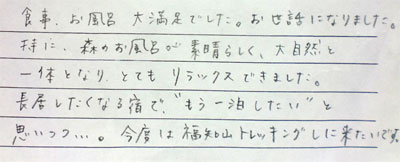 食事、お風呂 大満足でした。お世話になりました。
特に、森のお風呂が素晴らしく、大自然と
一体となり、とてもリラックスできました。
長居したくなる宿で、"もう一泊したい"と
思いつつ…。今度は福知山トレッキングしに来たいです。